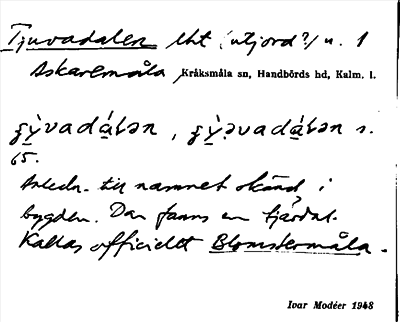 Tjuvadalen lht (utjord?) u. 1
Askaremåla, Kråksmåla sn, Handbörds hd, Kalm. l.
65.
Anledn. till namnet okänd i
bygden. Där fanns en fjärdal.
Kallas officiellt Blomstermåla.
Ivar Modéer 1948